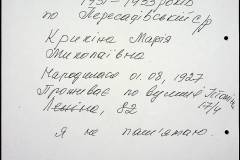 1931-1933 років
по Пересадівський с/р
Крикіна Марія
Миколаївна
Народилася 01.08.1927
Проживає по вулиця
17/4
Леніна, 82
Я не пам'ятаю.